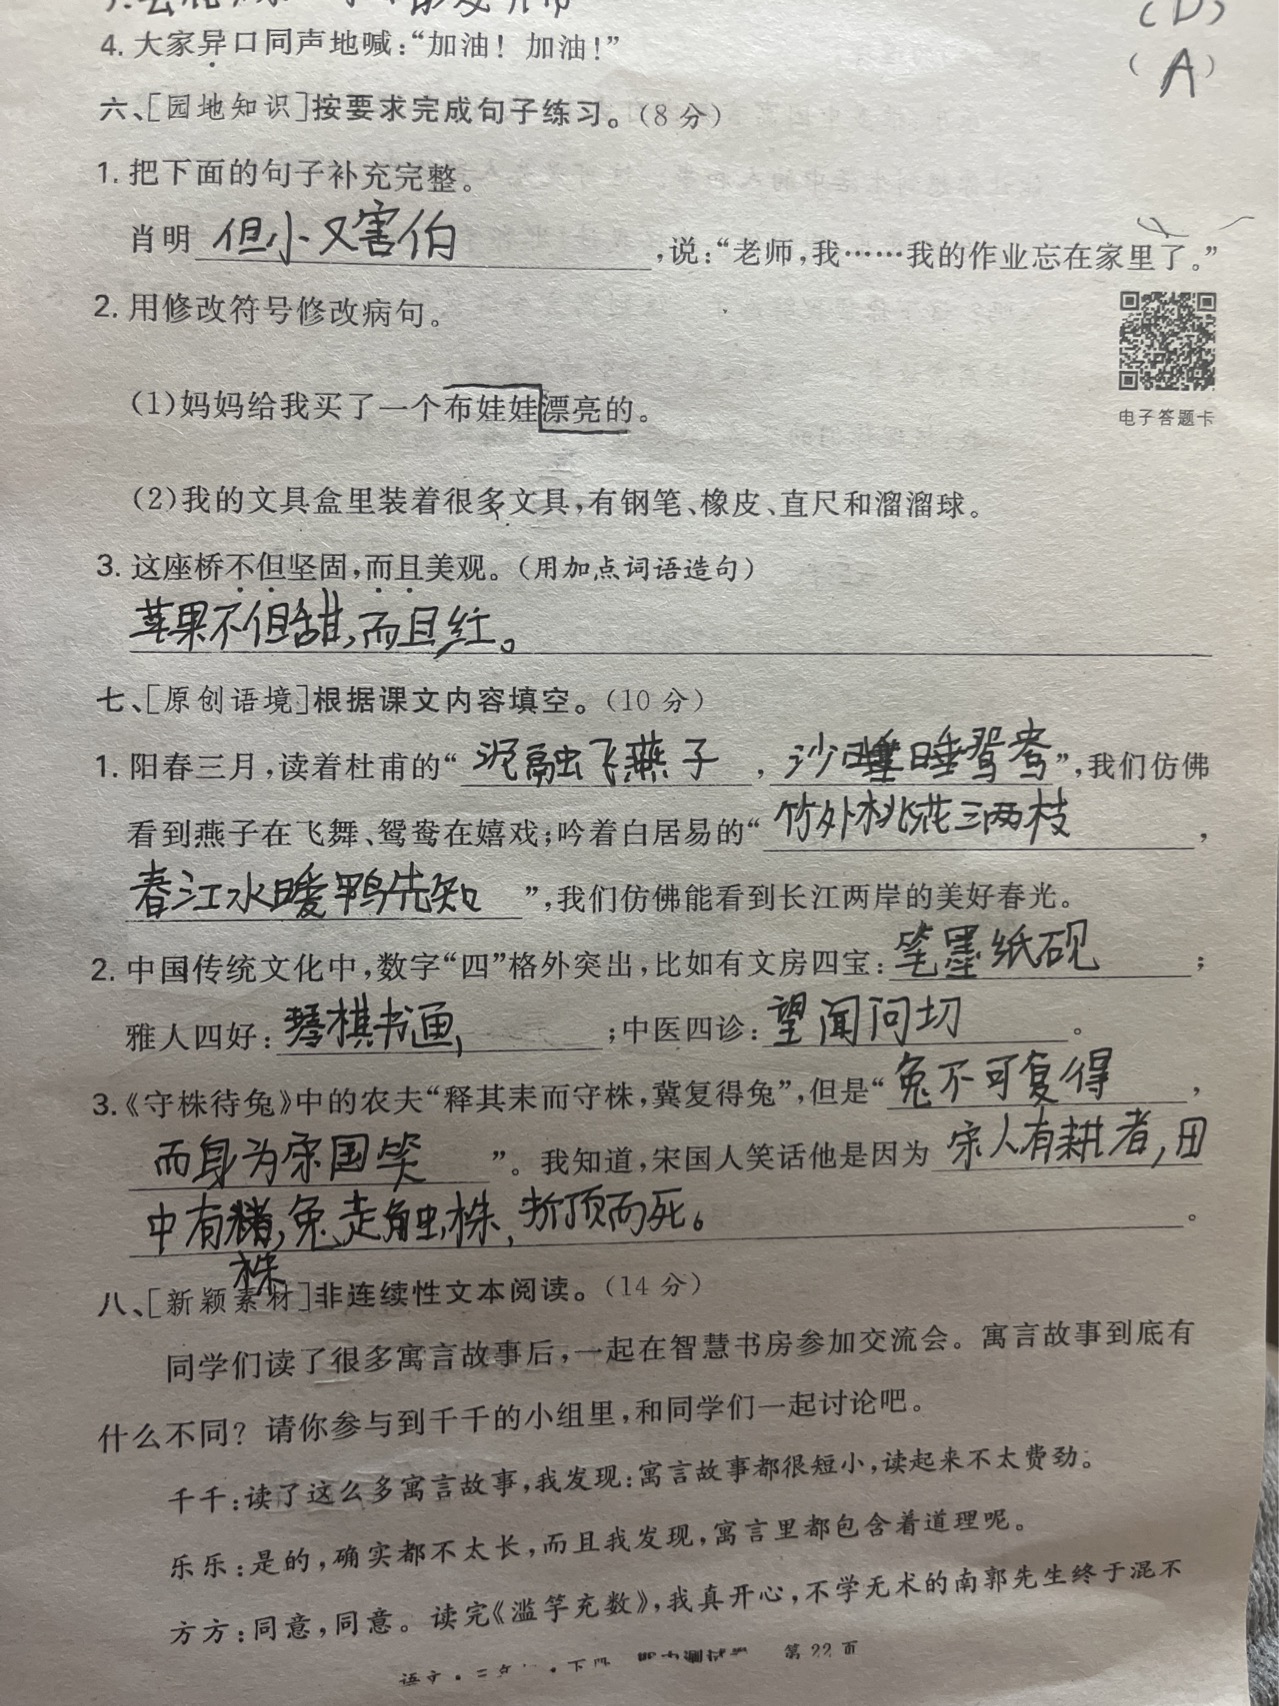 (D)
4. 大家异口同声地喊:“加油! 加油!”
(A)
六、[园地知识]按要求完成句子练习。(8分)
1. 把下面的句子补充完整。
肖明 但小又害伯 ,说:“老师,我……我的作业忘在家里了。”
2. 用修改符号修改病句。
电子答题卡
(1)妈妈给我买了一个布娃娃漂亮的。
(2)我的文具盒里装着很多文具,有钢笔、橡皮、直尺和溜溜球。
3. 这座桥不但坚固,而且美观。(用加点词语造句)
苹果不但甜,而且红。
七、[原创语境]根据课文内容填空。(10分)
1. 阳春三月,读着杜甫的“ 泥融飞燕子 , 沙睡鸳鸯 ”,我们仿佛
看到燕子在飞舞、鸳鸯在嬉戏;吟着白居易的“ 竹外桃花三两枝 ,
春江水暖鸭先知 ”,我们仿佛能看到长江两岸的美好春光。
2. 中国传统文化中,数字“四”格外突出,比如有文房四宝: 笔墨纸砚 ;
雅人四好: 琴棋书画 ;中医四诊: 望闻问切 。
3.《守株待兔》中的农夫“释其耒而守株,冀复得兔”,但是“ 兔不可复得 ,
而身为宋国笑 ”。我知道,宋国人笑话他是因为 宋人有耕者,田
中有株,兔走触株,折颈而死。 。
八、[新颖素材]非连续性文本阅读。(14分)
同学们读了很多寓言故事后,一起在智慧书房参加交流会。寓言故事到底有
什么不同? 请你参与到千千的小组里,和同学们一起讨论吧。
千千:读了这么多寓言故事,我发现:寓言故事都很短小,读起来不太费劲。
乐乐:是的,确实都不太长,而且我发现,寓言里都包含着道理呢。
方方:同意,同意。读完《滥竽充数》,我真开心,不学无术的南郭先生终于混不
第22页